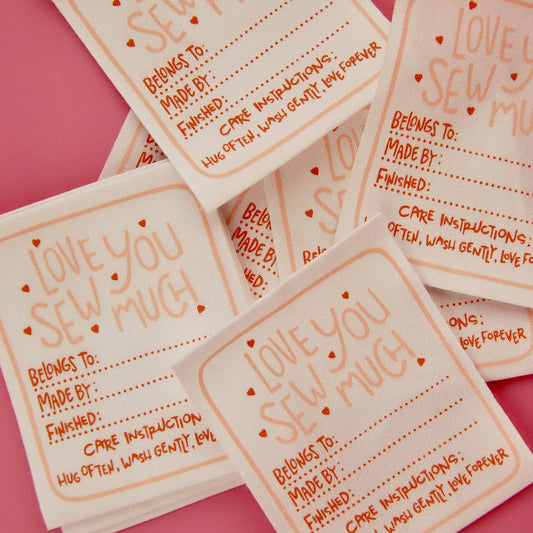 SEW MUCH
BELONGS TO:
MADE BY:
FINISHED:
CARE INSTRUCTIONS:
HUG OFTEN, WASH GENTLY, LOVE FOREVER
LOVE YOU
SEW
MUCH
BELONGS TO:
MADE BY:
FINISHED:
CARE INSTRUCTIONS:
OFTEN, WASH GENTLY, LOVE FOREVER
LOVE YOU
SEW MUCH
BELONGS TO:
MADE BY:
FINISHED:
CARE INSTRUCTION
HUG OFTEN, WASH GENTLY, LOVE
BELONGS
MADE BY
FINISHED:
LOVE YOU
SEW MUCH
BELONGS TO:
MADE BY:
FINISHED:
CARE INSTRUCTIONS:
HUG OFTEN, WASH GENTLY, LOVE FOREVER
LOVE FOREVER